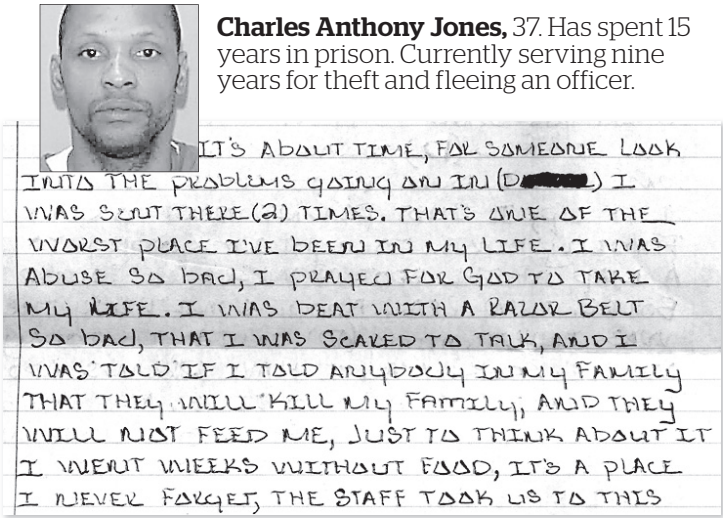 Charles Anthony Jones, 37. Has spent 15
years in prison. Currently serving nine
years for theft and fleeing an officer.
IT'S ABOUT TIME, FOR SOMEONE LOOK
INTO THE PROBLEMS GOING ON IN (D) I
WAS SENT THERE (2) TIMES. THAT'S ONE OF THE
WORST PLACE I'VE BEEN IN MY LIFE. I WAS
ABUSE SO bAd, I PRAYEd FOR GOD TO TAKE
MY LIFE. I WAS BEAT WITH A RAZOR BELT
SO bAd, THAT I WAS SCARED TO TALK, AND I
WAS TOLD IF I TOLD ANYBODY IN MY FAMILY
THAT THEY WILL KILL MY FAMILY, AND THEY
WILL NOT FEED ME, JUST TO THINK ABOUT IT
I WENT WEEKS WITHOUT FOOD, IT'S A PLACE
I NEVER FORGET, THE STAFF TOOK US TO THIS